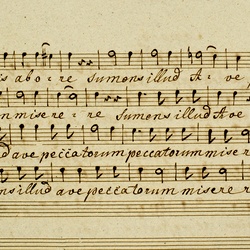 is abo:: re sumens illud A:: ve
n misere:: re sumens illud Ave
d ave peccatorum peccatorum misere
ns illud ave peccatorum misere r